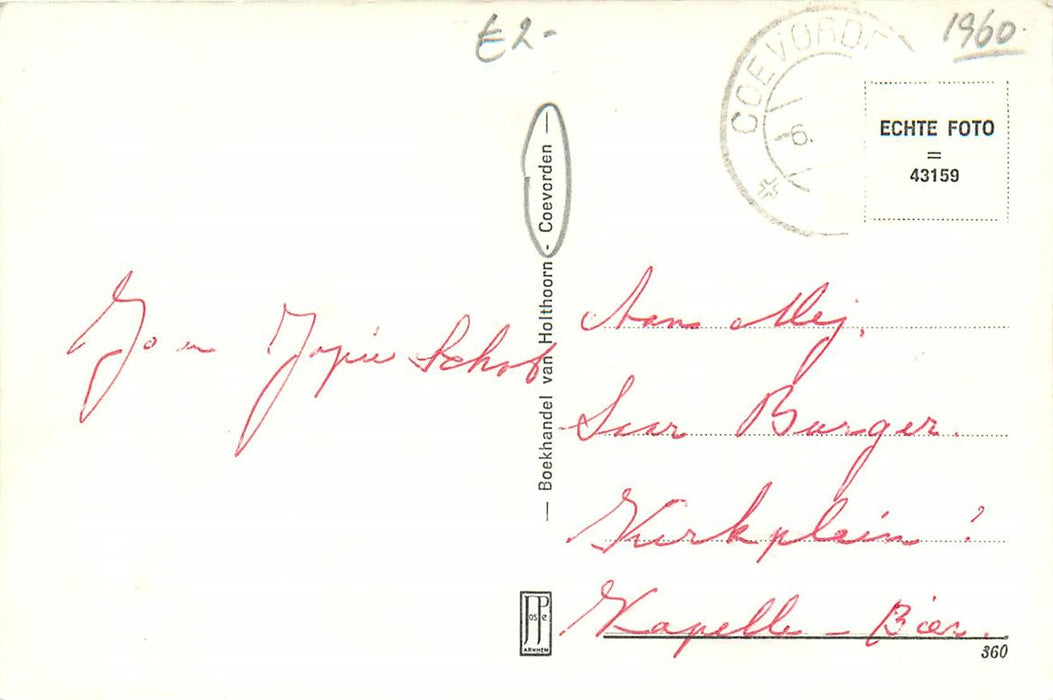 € 2-
1960
COEVORDE
6.
ECHTE FOTO
=
43159
— Boekhandel van Holthoorn - Coevorden —
Jo en Jopie Schot
Aan Mej.
Saar Burger.
Kerkplein ?
Kapelle - Bie
JosPe
ARNHEM
360